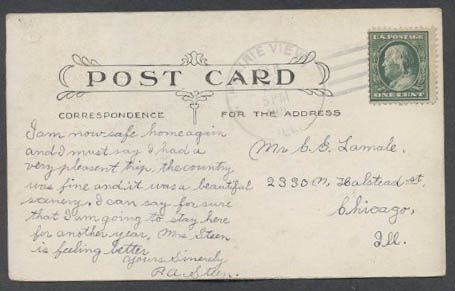 PRAIRIE VIEW
5 PM
ILL.
U.S. POSTAGE
ONE CENT
POST CARD
CORRESPONDENCE
FOR THE ADDRESS
I am now safe home again
and I must say I had a
very pleasent trip. the country
was fine and it was a beautiful
scenery. I can say for sure
that I am going to stay here
for another year. Mrs Steen
is feeling better
Yours Sincerely
P.A. Steen.
Mr C. G. Lamale.
2330 N. Halstead st.
Chicago,
Ill.